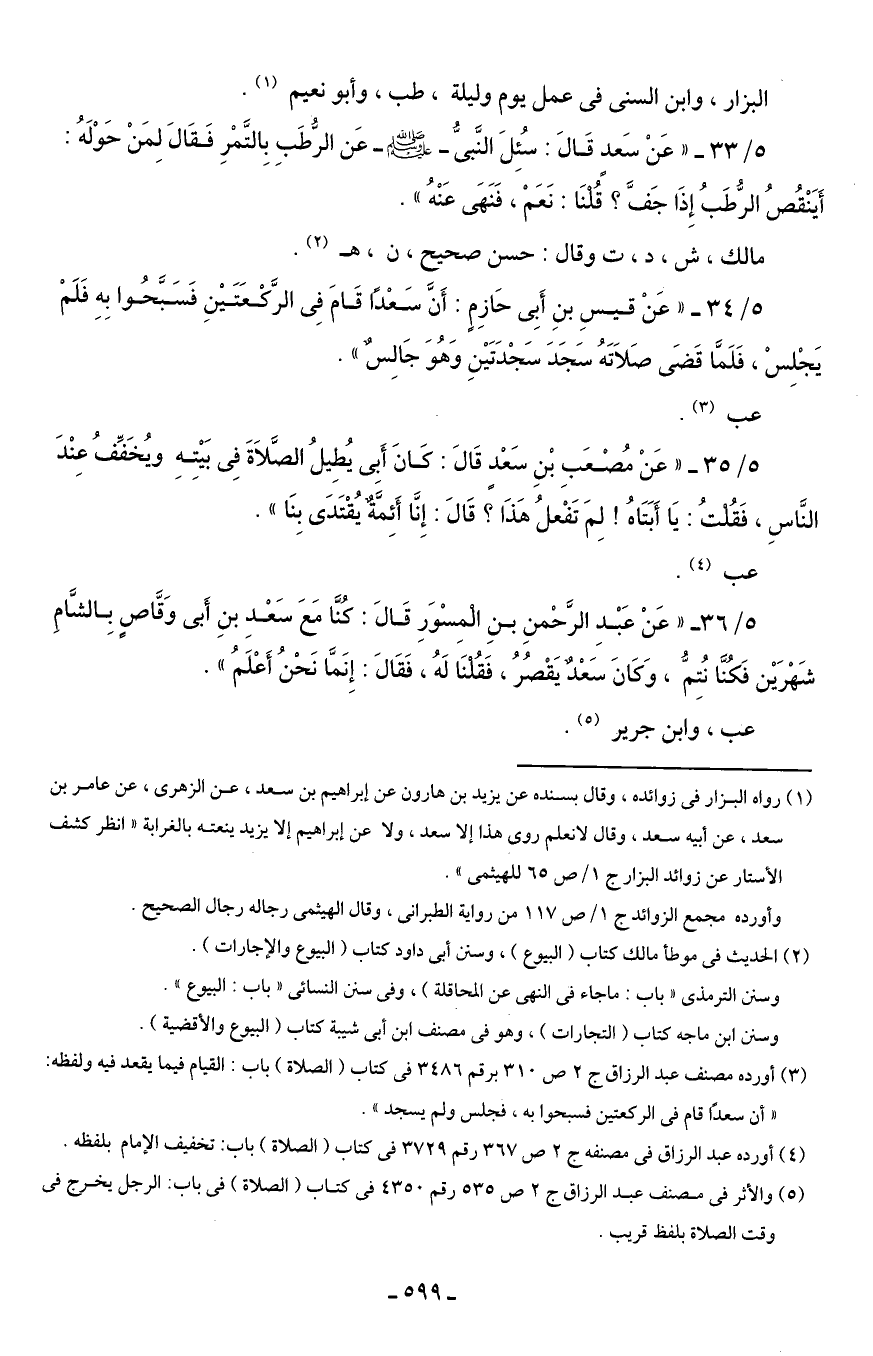 البزار ، وابن السنى فى عمل يوم وليلة ، طب ، وأبو نعيم (١) .
٥/ ٣٣ ـ « عَنْ سَعدٍ قَالَ : سُئِلَ النَّبىُّ ـ ﷺ ـ عَن الرُّطَبِ بِالتَّمْرِ فَقَالَ لِمَنْ حَوْلَهُ :
أَيَنْقُصُ الرُّطَبُ إِذَا جَفَّ ؟ قُلْنَا : نَعَمْ ، فَنَهَى عَنْهُ » .
مالك ، ش ، د ، ت وقال : حسن صحيح ، ن ، هـ (٢) .
٥/ ٣٤ ـ « عَنْ قيسِ بنِ أَبى حَازِمٍ : أَنَّ سَعْدًا قَامَ فِى الرَّكْعَتَيْنِ فَسَبَّحُوا بِهِ فَلَمْ
يَجْلِسْ ، فَلَمَّا قَضَى صَلاَتَهُ سَجَدَ سَجْدَتَيْنِ وَهُوَ جَالسٌ » .
عب (٣) .
٥/ ٣٥ ـ « عَنْ مُصْعَبِ بْنِ سَعْدٍ قَالَ : كَانَ أَبى يُطِيلُ الصَّلاَةَ فِى بَيْتِهِ ويُخَفِّفُ عِنْدَ
النَّاسِ ، فَقُلْتُ : يَا أَبَتَاهُ ! لِمَ تَفْعلُ هَذَا ؟ قَالَ : إِنَّا أَئِمةٌ يُقْتَدَى بِنَا » .
عب (٤) .
٥/ ٣٦ـ « عَنْ عَبْدِ الرَّحْمنِ بنِ الْمِسْوَرِ قَالَ : كُنَّا مَعَ سَعْدِ بنِ أَبى وَقَّاصٍ بِالشَّامِ
شَهْرَيْنِ فَكُنَّا نُتمُّ ، وَكَانَ سَعْدٌ يَقْصُرُ ، فَقُلْنَا لَهُ ، فَقَالَ : إِنَمَّا نَحْنُ أَعْلَمُ » .
عب ، وابن جرير (٥) .
(١) رواه البزار فى زوائده ، وقال بسنده عن يزيد بن هارون عن إبراهيم بن سعد ، عن الزهرى ، عن عامر بن
سعد ، عن أبيه سعد ، وقال لانعلم روى هذا إلا سعد ، ولا عن إبراهيم إلا يزيد ينعته بالغرابة « انظر كشف
الأستار عن زوائد البزار ج ١/ ص ٦٥ للهيثمى » .
وأورده مجمع الزوائد ج ١/ ص ١١٧ من رواية الطبرانى ، وقال الهيثمى رجاله رجال الصحيح .
(٢) الحديث فى موطأ مالك كتاب ( البيوع ) ، وسنن أبى داود كتاب ( البيوع والإجارات ) .
وسنن الترمذى « باب : ماجاء فى النهى عن المحاقلة ) ، وفى سنن النسائى « باب : البيوع » .
وسنن ابن ماجه كتاب ( التجارات ) ، وهو فى مصنف ابن أبى شيبة كتاب ( البيوع والأقضية ) .
(٣) أورده مصنف عبد الرزاق ج ٢ ص ٣١٠ برقم ٣٤٨٦ فى كتاب ( الصلاة ) باب : القيام فيما يقعد فيه ولفظه:
« أن سعدًا قام فى الركعتين فسبحوا به ، فجلس ولم يسجد » .
(٤) أورده عبد الرزاق فى مصنفه ج ٢ ص ٣٦٧ رقم ٣٧٢٩ فى كتاب ( الصلاة ) باب: تخفيف الإمام بلفظه .
(٥) والأثر فى مصنف عبد الرزاق ج ٢ ص ٥٣٥ رقم ٤٣٥٠ فى كتاب ( الصلاة ) فى باب: الرجل يخرج فى
وقت الصلاة بلفظ قريب .
ـ ٥٩٩ ـ